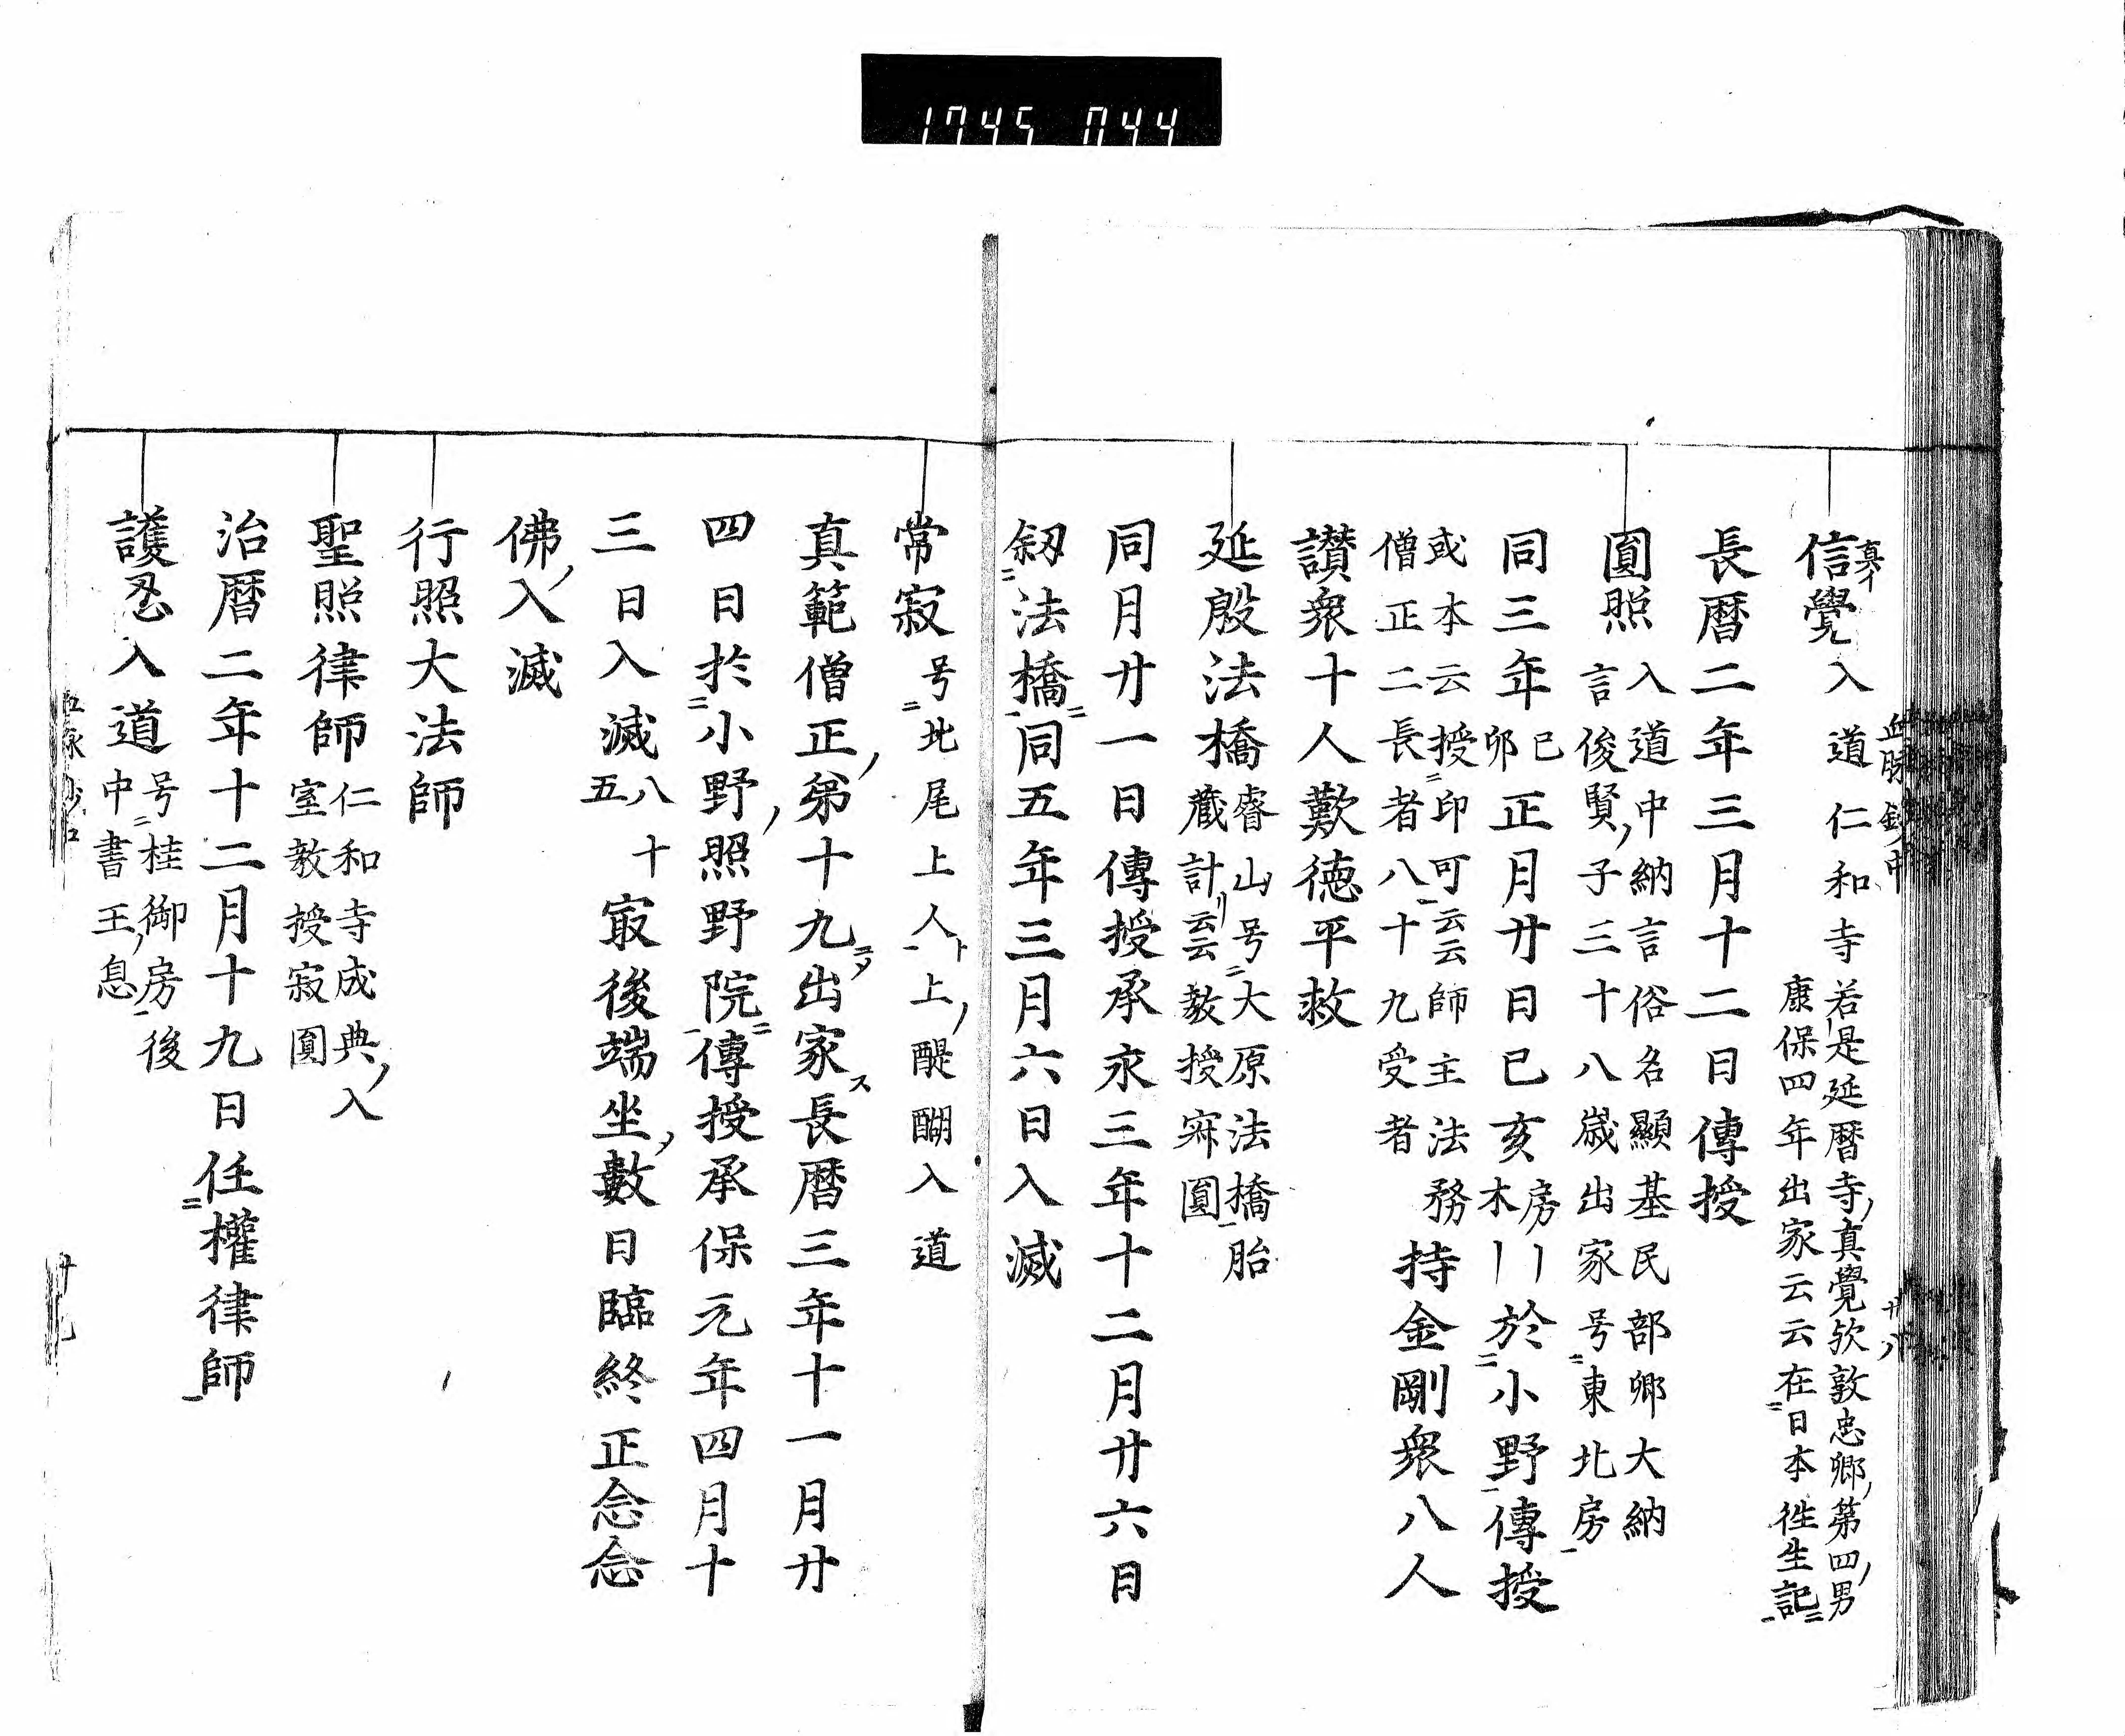 1745 044
血脉鈔中
廿八
信覺入道仁和寺
真イ
若是延暦寺真覺欤敦忠卿第四男
康保四年出家云云在日本徃生記
長暦二年三月十二日傳授
圓照
入道中納言俗名顯基民部卿大納
言俊賢子三十八歳出家号東北房
同三年
己
卯
正月廿日己亥
房
木
於小野傳授
或本云授印可云云師主法務
僧正二長者八十九受者
持金剛衆八人
讃衆十人歎徳平救
延殷法橋
睿山号大原法橋胎
蔵計リ云云教授寂圓
同月廿一日傳授承永三年十二月廿六日
釼法橋同五年三月六日入滅
常寂
号北尾上人ト上醍醐入道
真範僧正第十九ニメ出家ス長暦三年十一月廿
四日於小野照野院傳授承保元年四月十
三日入滅
八十
五
寂後端坐數日臨終正念念
佛入滅
行照大法師
聖照律師
仁和寺成典入
室教授寂圓
治暦二年十二月十九日任權律師
護忍入道
号桂御房後
中書王息